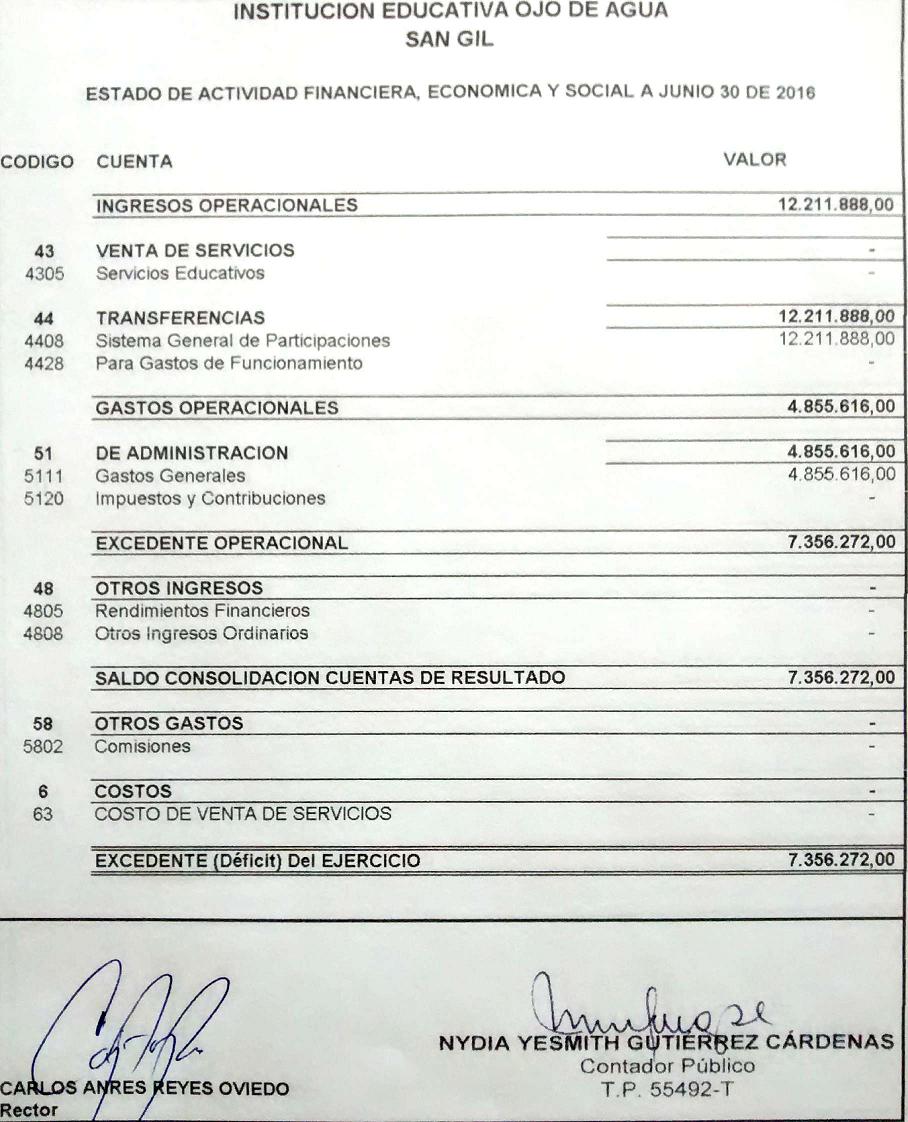 INSTITUCION EDUCATIVA OJO DE AGUA
SAN GIL
ESTADO DE ACTIVIDAD FINANCIERA, ECONOMICA Y SOCIAL A JUNIO 30 DE 2016
CODIGO CUENTA VALOR
INGRESOS OPERACIONALES 12.211.888,00
43 VENTA DE SERVICIOS -
4305 Servicios Educativos -
44 TRANSFERENCIAS 12.211.888,00
4408 Sistema General de Participaciones 12.211.888,00
4428 Para Gastos de Funcionamiento -
GASTOS OPERACIONALES 4.855.616,00
51 DE ADMINISTRACION 4.855.616,00
5111 Gastos Generales 4.855.616,00
5120 Impuestos y Contribuciones -
EXCEDENTE OPERACIONAL 7.356.272,00
48 OTROS INGRESOS -
4805 Rendimientos Financieros -
4808 Otros Ingresos Ordinarios -
SALDO CONSOLIDACION CUENTAS DE RESULTADO 7.356.272,00
58 OTROS GASTOS -
5802 Comisiones -
6 COSTOS -
63 COSTO DE VENTA DE SERVICIOS -
EXCEDENTE (Déficit) Del EJERCICIO 7.356.272,00
CARLOS ANRES REYES OVIEDO
Rector
NYDIA YESMITH GUTIERREZ CÁRDENAS
Contador Público
T.P. 55492-T